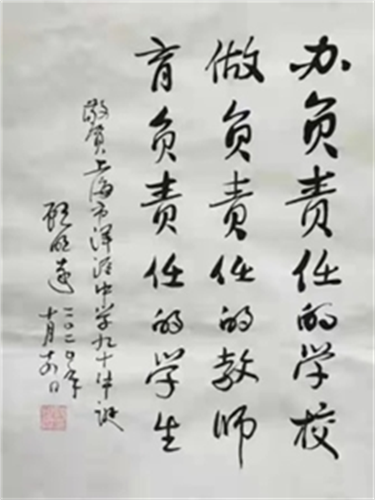 办负责任的学校
做负责任的教师
育负责任的学生
敬贺上海市洋泾中学九十华诞
顾明远
二〇二〇年
十月六日